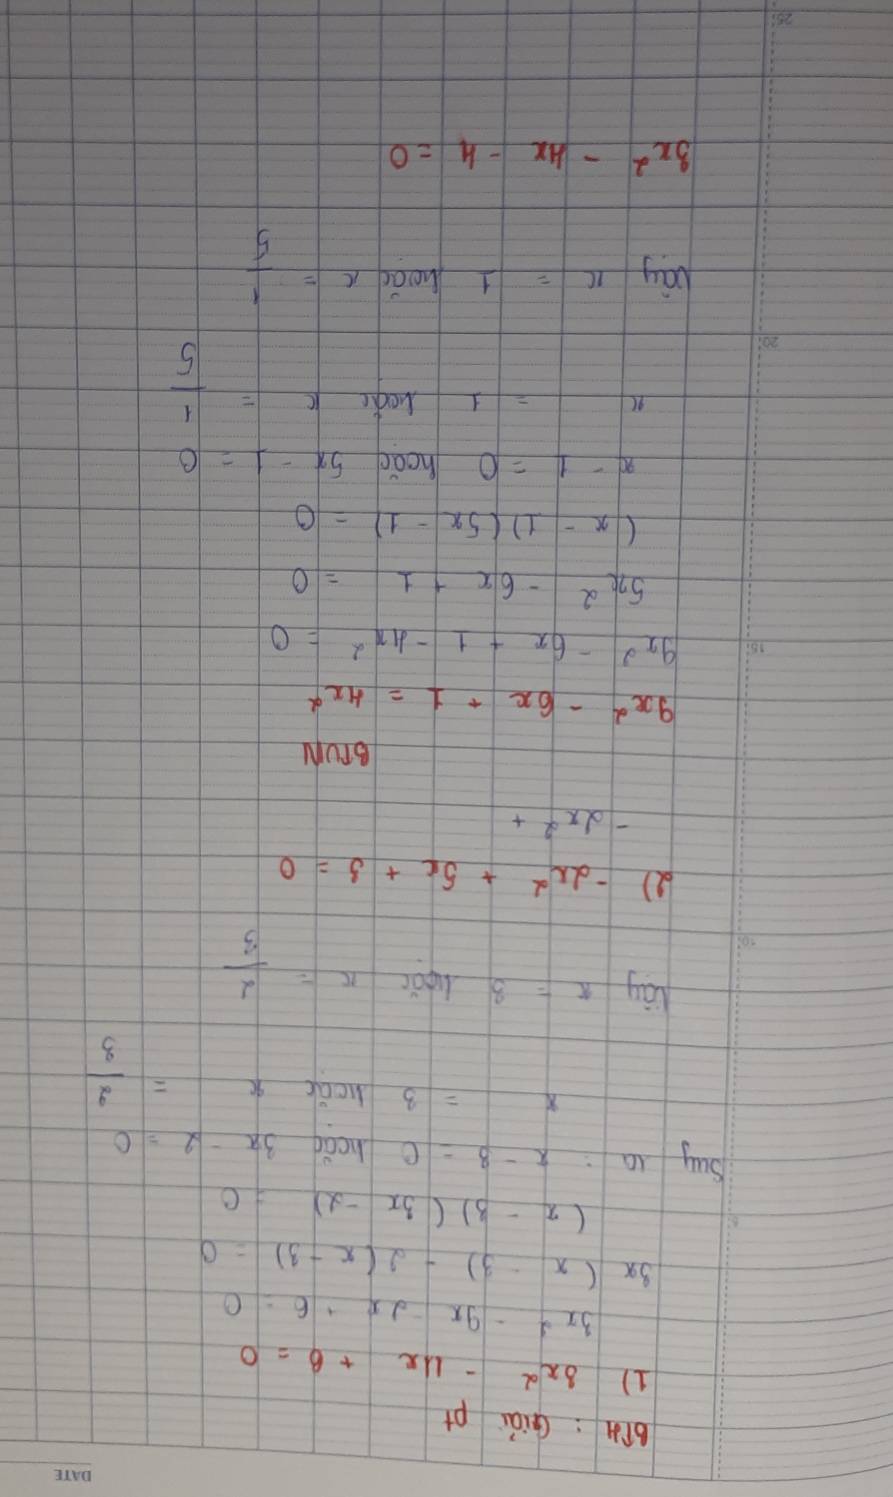 DATE
BTH : Giải pt
1) 3x² - 11x + 6 = 0
3x² - 9x - 2x + 6 = 0
3x (x - 3) - 2(x - 3) = 0
(x - 3)(3x - 2) = 0
Suy ra : x - 3 = 0 hoặc 3x - 2 = 0
x = 3 hoặc x = 2/3
Vậy x = 3 hoặc x = 2/3
2) -2x² + 5x + 3 = 0
-2x² +
BTVN
9x² - 6x + 1 = 4x²
9x² - 6x + 1 - 4x² = 0
5x² - 6x + 1 = 0
(x - 1)(5x - 1) = 0
x - 1 = 0 hoặc 5x - 1 = 0
x = 1 hoặc x = 1/5
Vậy x = 1 hoặc x = 1/5
3x² - 4x - 4 = 0
5
10
15
20
25